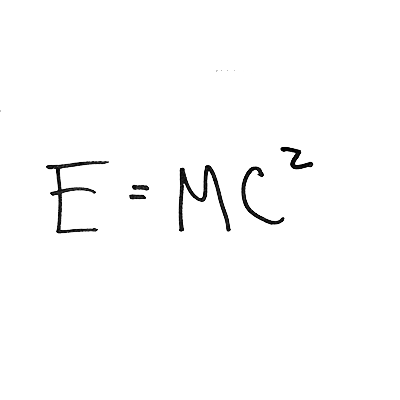 E = MC²